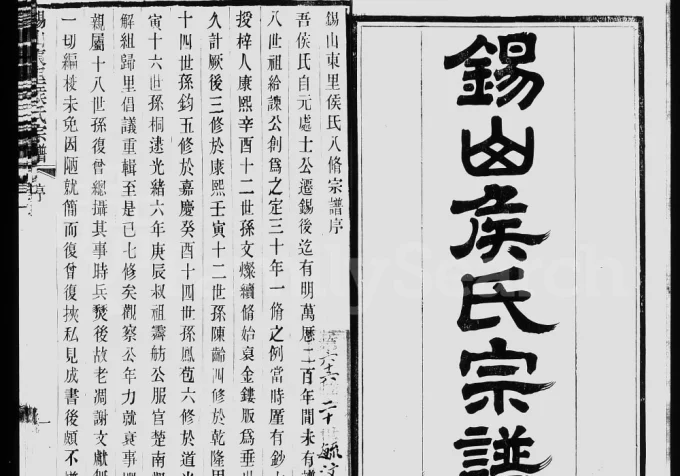 錫山矦氏宗譜
錫山東里侯氏八脩宗譜序
吾侯氏自元處士公遷錫後迄有明萬曆二百年間未有譜
八世祖給諫公創爲之定三十年一脩之例當時厪有鈔
授梓人康熙辛酉十二世孫文燦續脩始裒金鏤版爲垂
久計厥後三修於康熙壬寅十二世孫陳齡四修於乾隆
十四世孫鈞五修於嘉慶癸酉十四世孫鳳苞六修於道光
寅十六世孫桐逮光緒六年庚辰叔祖
舫公服官楚南
解組歸里倡議重輯至是已七修矣觀察公年力就衰事
親屬十八世孫復曾總攝其事時兵燹後故老凋謝文獻無
一切編校未免因陋就簡而復曾復挾私見成書後頗不
錫山東里侯氏宗譜
序
一
二十
FamilySearch